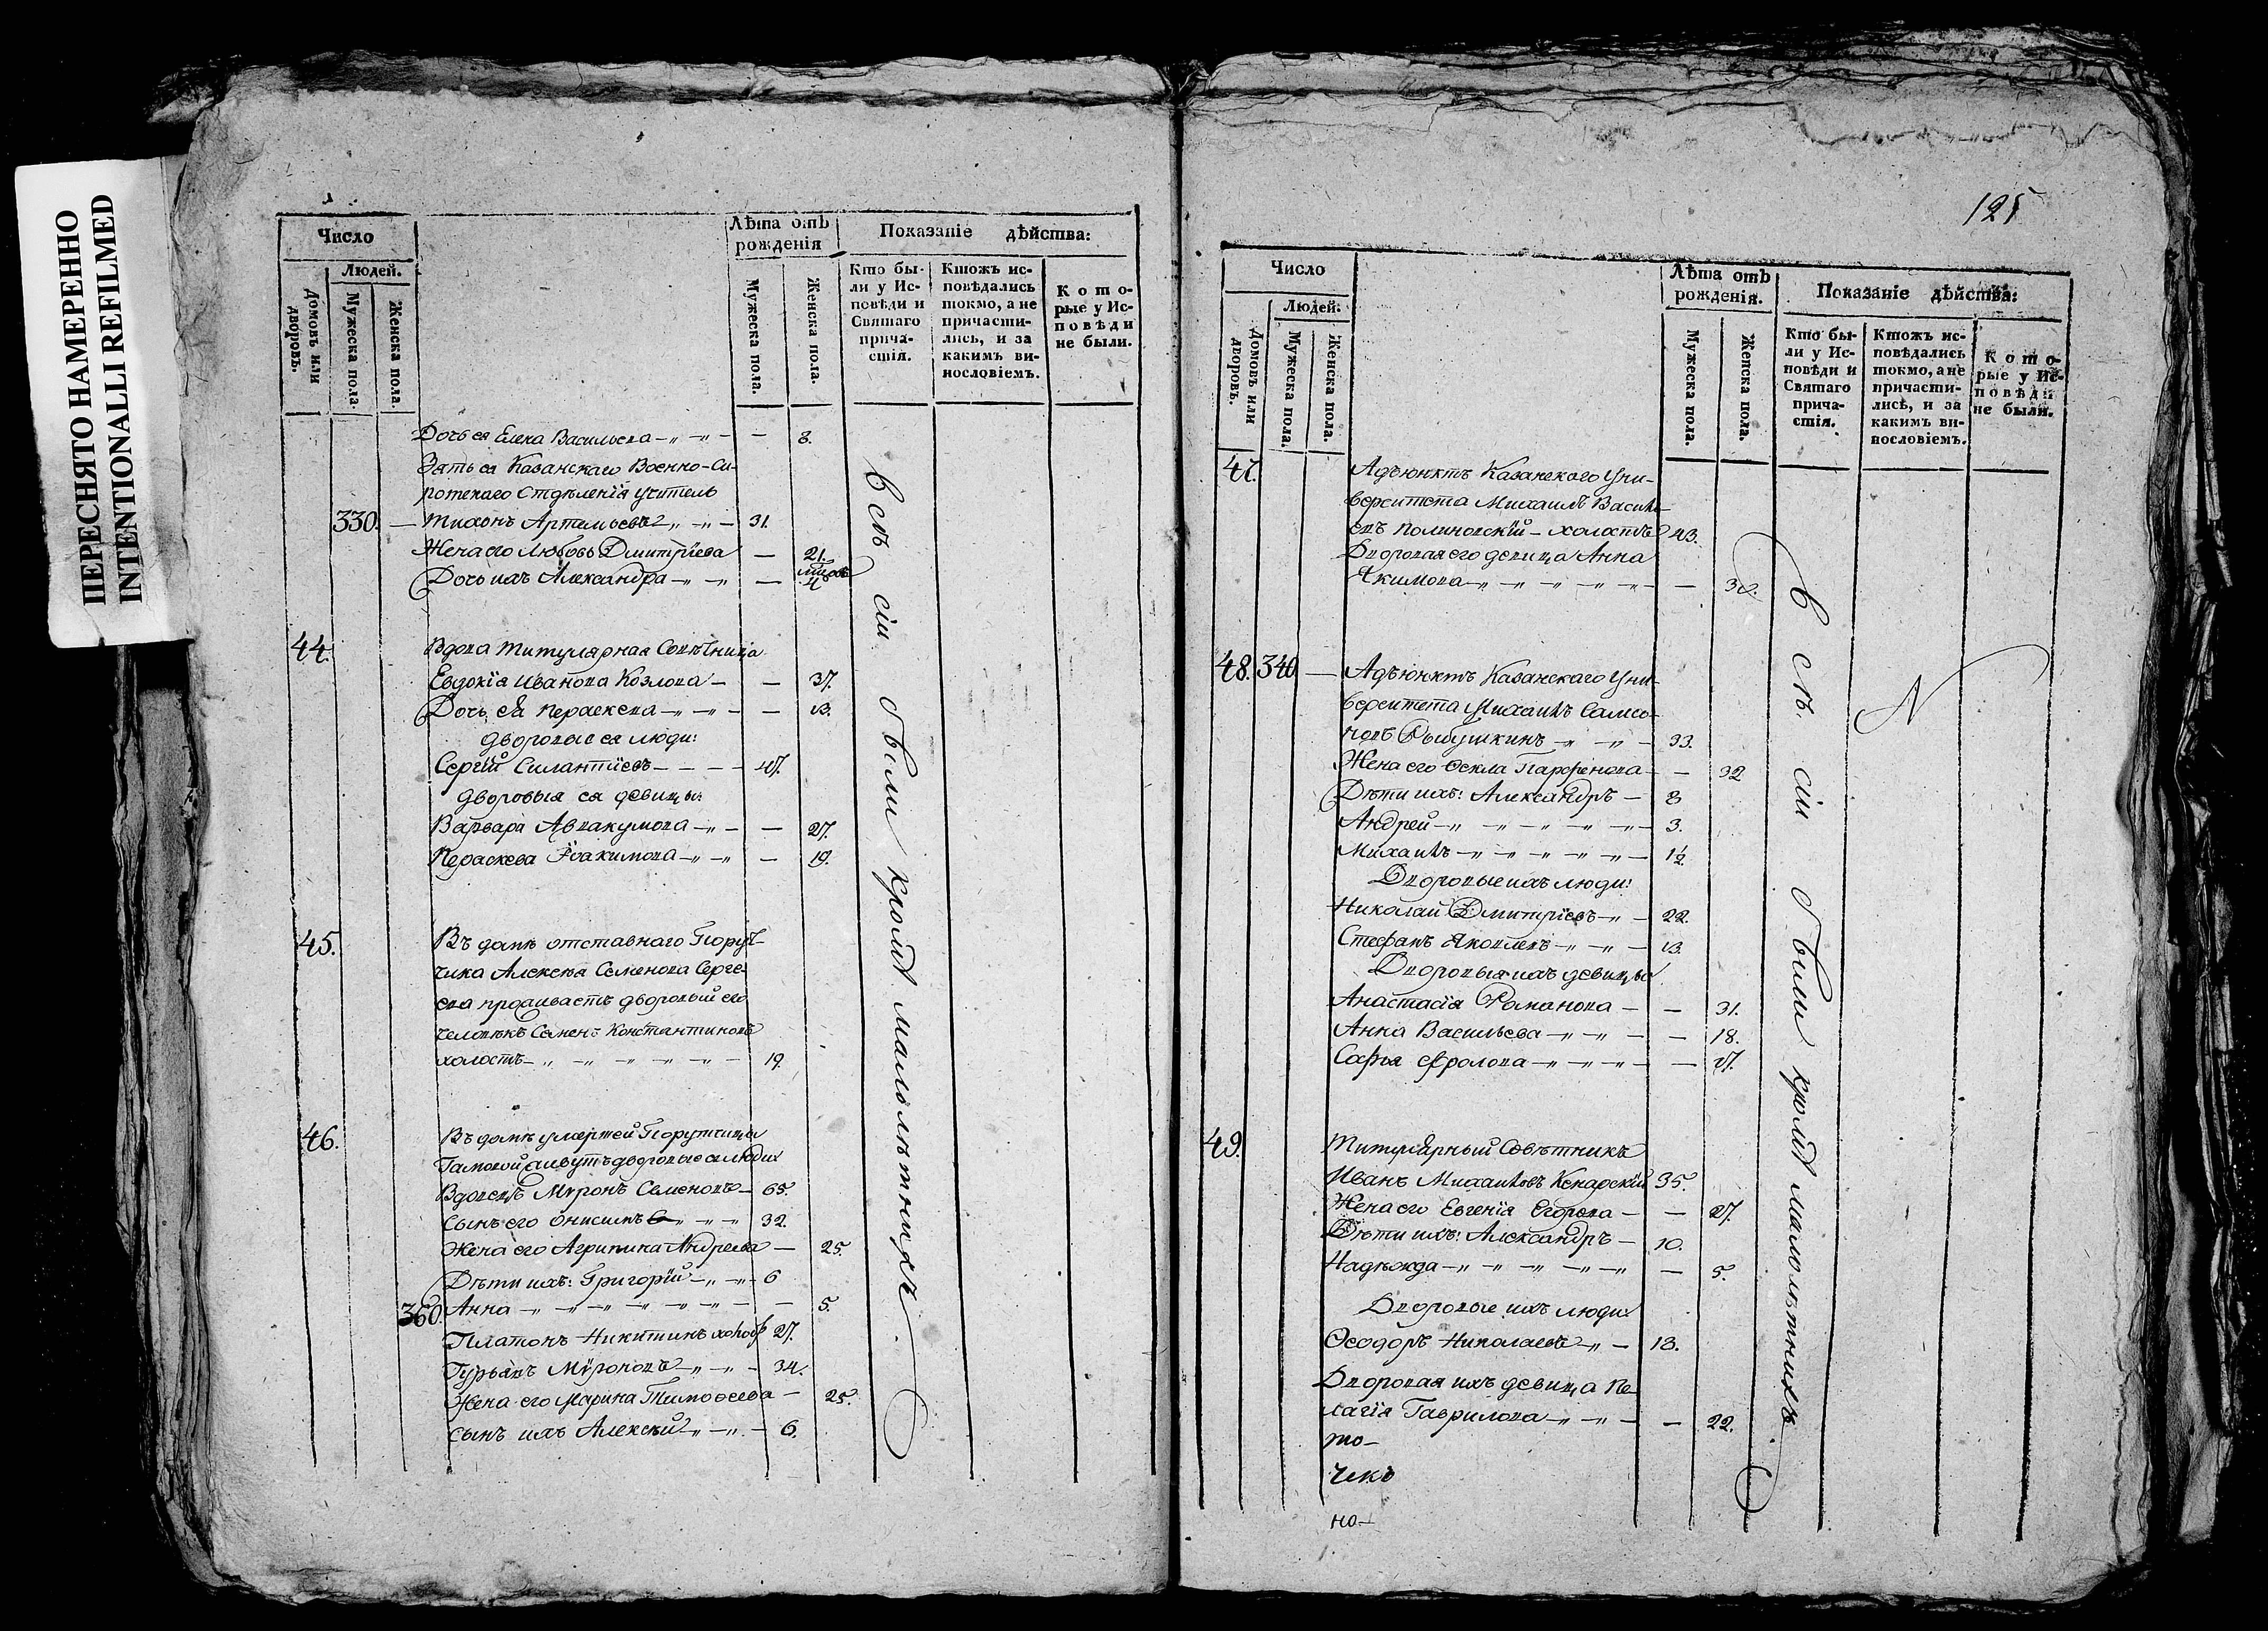 ПЕРЕСНЯТО НАМЕРЕННО
INTENTIONALLI REFILMED
Число
Людей.
Домовъ или дворовъ.
Мужеска пола.
Женска пола.
Лѣта отъ рожденія
Мужеска пола.
Женска пола.
Показаніе дѣйства:
Кто бы-
ли у Ис-
повѣди и
Святаго
прича-
стія.
Ктожъ ис-
повѣдались
токмо, а не
причасти-
лись, и за
какимъ ви-
нословіемъ.
Кото-
рые у Ис-
повѣди
не были.
Дочь ея Елена Васильева — — 8.
Зять ея Казанскаго Военно-Си-
ротскаго Отдѣленія учитель
330. — Тихонъ Артемьевъ — 31.
Жена его Любовь Дмитріева — 21.
Дочь ихъ Александра — — 4
44. Вдова Титулярная Совѣтница
Евдокія Иванова Козлова — — 37.
Дочь ея Пераскева — — 13.
Дворовые ея люди:
Сергій Силантіевъ — 47.
Дворовыя ея девицы:
Варвара Аввакумова — — 27.
Пераскева Іоакимова — — 19.
45. Въ домѣ отставнаго Поруч-
чика Алексѣя Семенова Серге-
ева проживаетъ дворовый его
человѣкъ Семенъ Константиновъ
холостъ — 19.
46. Въ домѣ умершей Порутчицы
живутъ дворовые ея люди:
Вдовецъ Миронъ Семеновъ — 65.
Сынъ его Онисимъ — 32.
Жена его Агрипина Андреева — 25.
Дѣти ихъ: Григорій — 6
360. Анна — — 5.
Платонъ Никитинъ холос 27.
Гурьянъ Мѵроновъ — 34.
Жена его Марина Тимоѳеева — 25.
Сынъ ихъ Алексѣй — 6.
Всѣ сіи были кромѣ малолѣтнихъ.
125
Число
Людей.
Домовъ или дворовъ.
Мужеска пола.
Женска пола.
Лѣта отъ рожденія.
Мужеска пола.
Женска пола.
Показаніе дѣйства:
Кто бы-
ли у Ис-
повѣди и
Святаго
прича-
стія.
Ктожъ ис-
повѣдались
токмо, а не
причасти-
лись, и за
какимъ ви-
нословіемъ.
Кото-
рые у Ис-
повѣди
не были.
47. Адъюнктъ Казанскаго Уни-
верситета Михаилъ Василь-
евъ Полиновскій — холостъ 43.
Дворовая его девица Анна
Якимова — — 30.
48. 340 — Адъюнктъ Казанскаго Уни-
верситета Михаилъ Самсо-
новъ Рыбушкинъ — 33.
Жена его Ѳекла Парфенова — — 32
Дѣти ихъ: Александръ — 8
Андрей — 3.
Михаилъ — 1½.
Дворовые ихъ люди:
Николай Дмитріевъ — 22.
Стефанъ Яковлевъ — 13.
Дворовыя ихъ девицы
Анастасія Романова — — 31.
Анна Васильева — — 18.
Софья Фролова — — 17.
49. Титулярный Совѣтникъ
Иванъ Михайловъ Кенарскій 35.
Жена его Евгенія Егорова — — 27.
Дѣти ихъ: Александръ — 10.
Надежда — — 5.
Дворовые ихъ люди:
Ѳеодоръ Николаевъ — 18.
Дворовая ихъ девица Пе-
лагія Гаврилова — — 22.
то-
чекъ
но-
Всѣ сіи были кромѣ малолѣтнихъ.